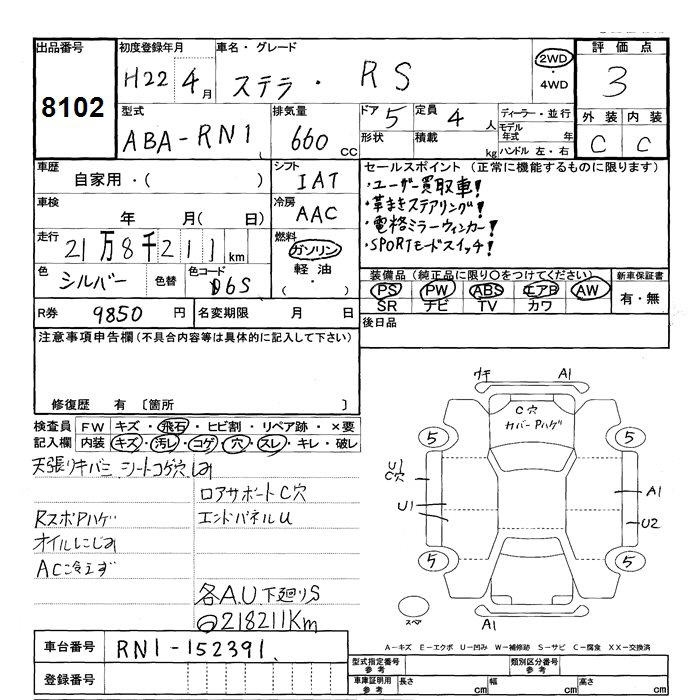 出品番号 初度登録年月 車名・グレード 評価点
8102 H22 4月 ステラ・ RS 2WD・4WD 3
型式 排気量 ドア 5 定員 4人 ディーラー・並行 外装 内装
ABA-RN1 660 CC 形状 積載 kg モデル年式 年 C C
ハンドル 左・右
車歴 自家用・( ) シフト IAT セールスポイント (正常に機能するものに限ります)
・ユーザー買取車!
車検 年 月( 日) 冷房 AAC ・革まきステアリング!
・電格ミラーウィンカー!
走行 21万8千211km 燃料 ガソリン 軽油・( ) ・SPORTモードスイッチ!
色 シルバー 色替 色コード D6S 装備品 (純正品に限り〇をつけてください) 新車保証書
PS PW ABS エアB AW 有・無
SR ナビ TV カワ
R券 9850円 名変期限 月 日 後日品
注意事項申告欄 (不具合内容等は具体的に記入して下さい)
修復歴 有 〔箇所 〕
検査員 FW キズ・飛石・ヒビ割・リペア跡・×要
記入欄 内装 キズ・汚レ・コゲ・穴・スレ・キレ・破レ
天張りキバミ シートコゲ穴しみ
ロアサポートC穴
RスポAハゲ エンドパネルU
オイルにじみ
AC冷えず
各A.U.下廻りS
218211Km
キキ A1
C穴
カバーPハゲ
5 5
U1
C穴
A1
U1
U2
5 5
スペア
A1
A-キズ E-エクボ U-凹み W-補修跡 S-サビ C-腐食 XX-交換済
車台番号 RN1-152391 型式指定番号 参考 類別区分番号 参考
登録番号 車庫証明用 参考 長さ cm 幅 cm 高さ cm